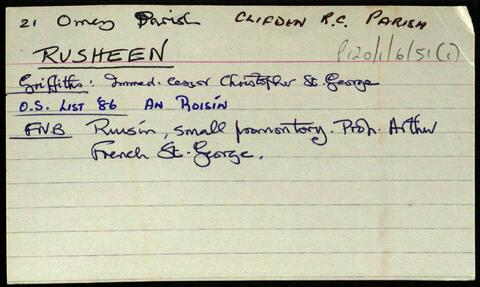 21 Omey Parish CLIFDEN R.C. PARISH
RUSHEEN P120/1/6/51(1)
Griffiths: Immed. lessor Christopher St. George
O.S. LIST '86 AN ROISÍN
FNB Ruisín, small promontory. Prop. Arthur
French St. George.